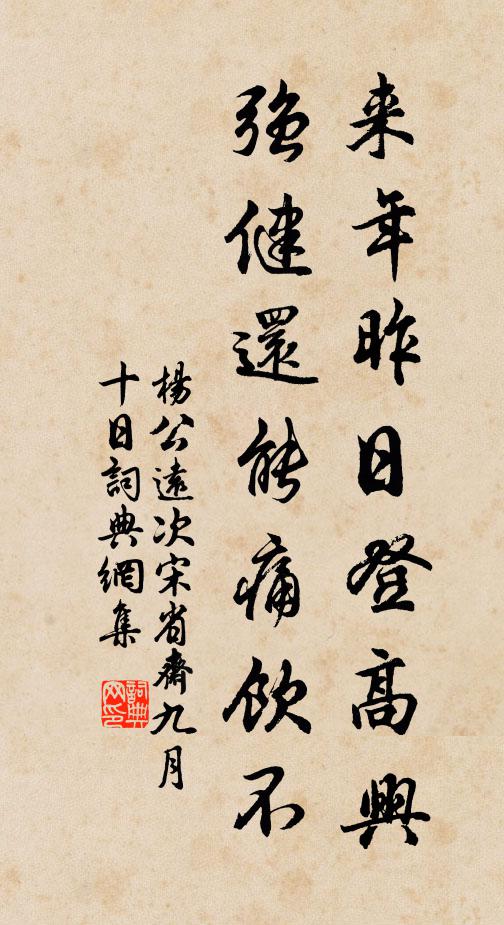 来年昨日登高興
强健還能痛飲不
楊公遠次宋省齋九月
十日詞典網集
詞典
网印